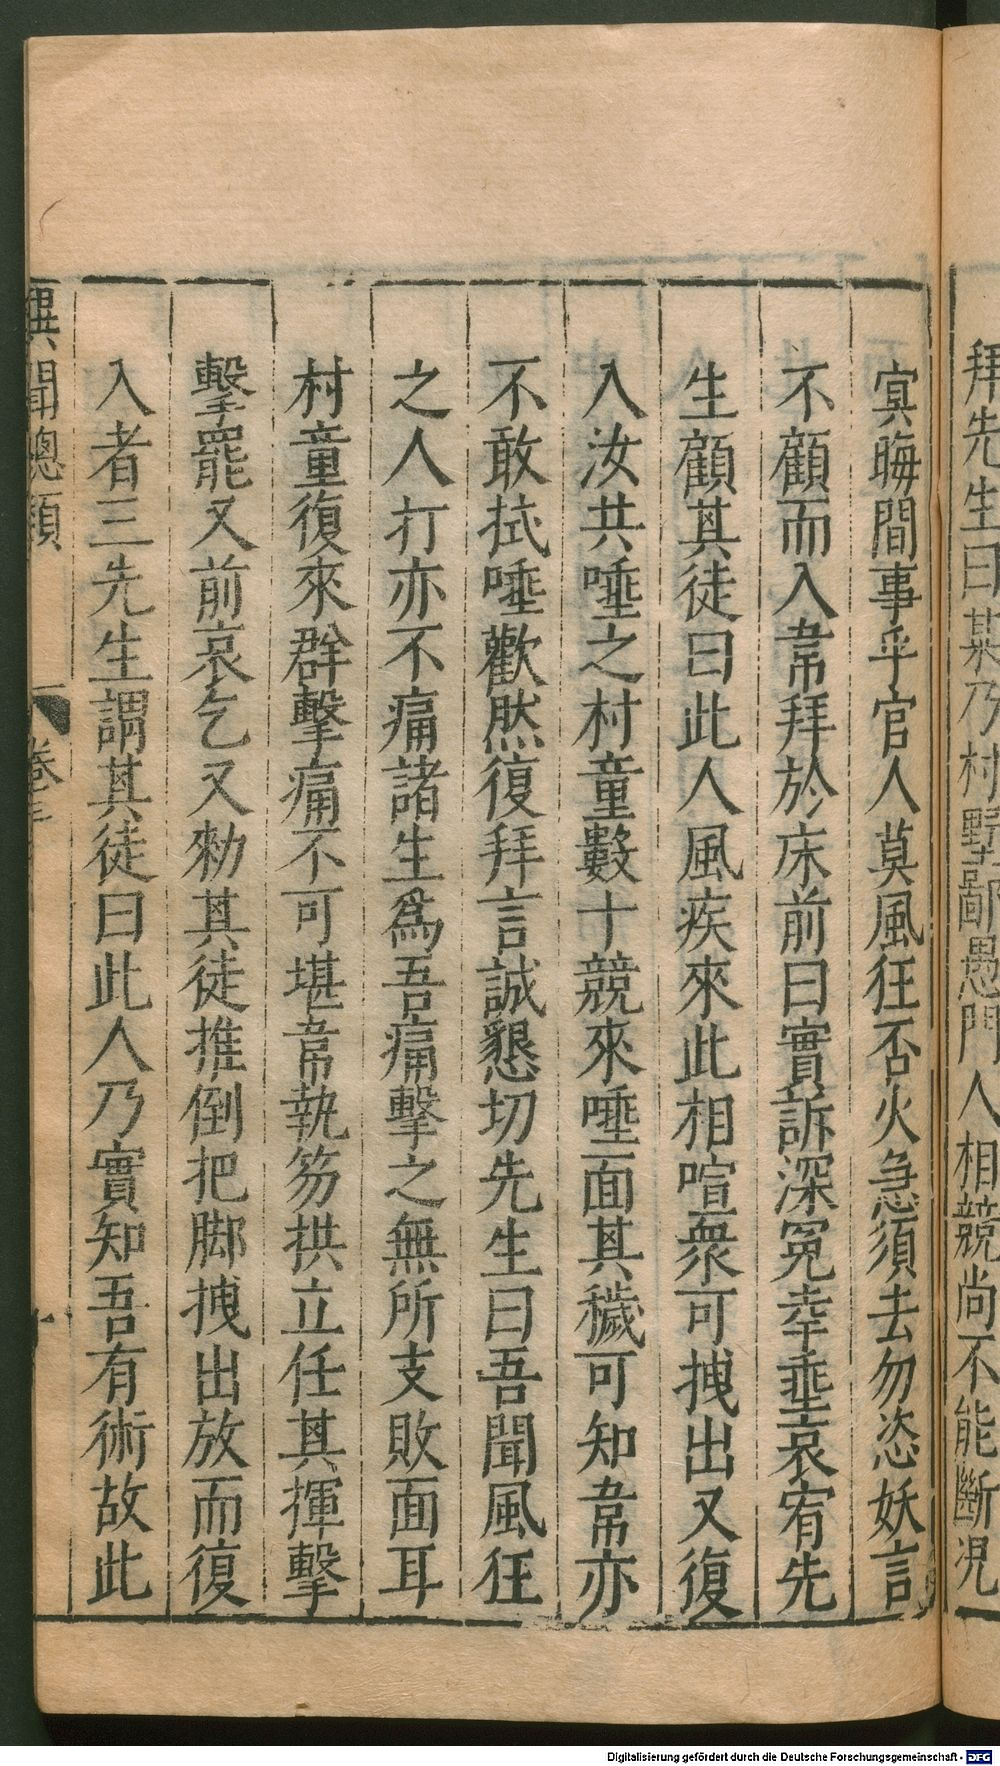 拜先生曰某乃村野鄙愚門人相競尚不能斷況
冥晦間事乎官人莫風狂否火急須去勿恣妖言
不顧而入韋拜於床前曰實訴深冤幸垂哀宥先
生顧其徒曰此人風疾來此相喧衆可拽出又復
入汝共唾之村童數十競來唾面其穢可知韋亦
不敢拭唾歡然復拜言誠懇切先生曰吾聞風狂
之人打亦不痛諸生爲吾痛擊之無所支敗面耳
村童復來群擊痛不可堪韋執笏拱立任其揮擊
擊罷又前哀乞又勑其徒推倒把脚拽出放而復
入者三先生謂其徒曰此人乃實知吾有術故此
聞總類 卷
Digitalisierung gefördert durch die Deutsche Forschungsgemeinschaft - DFG